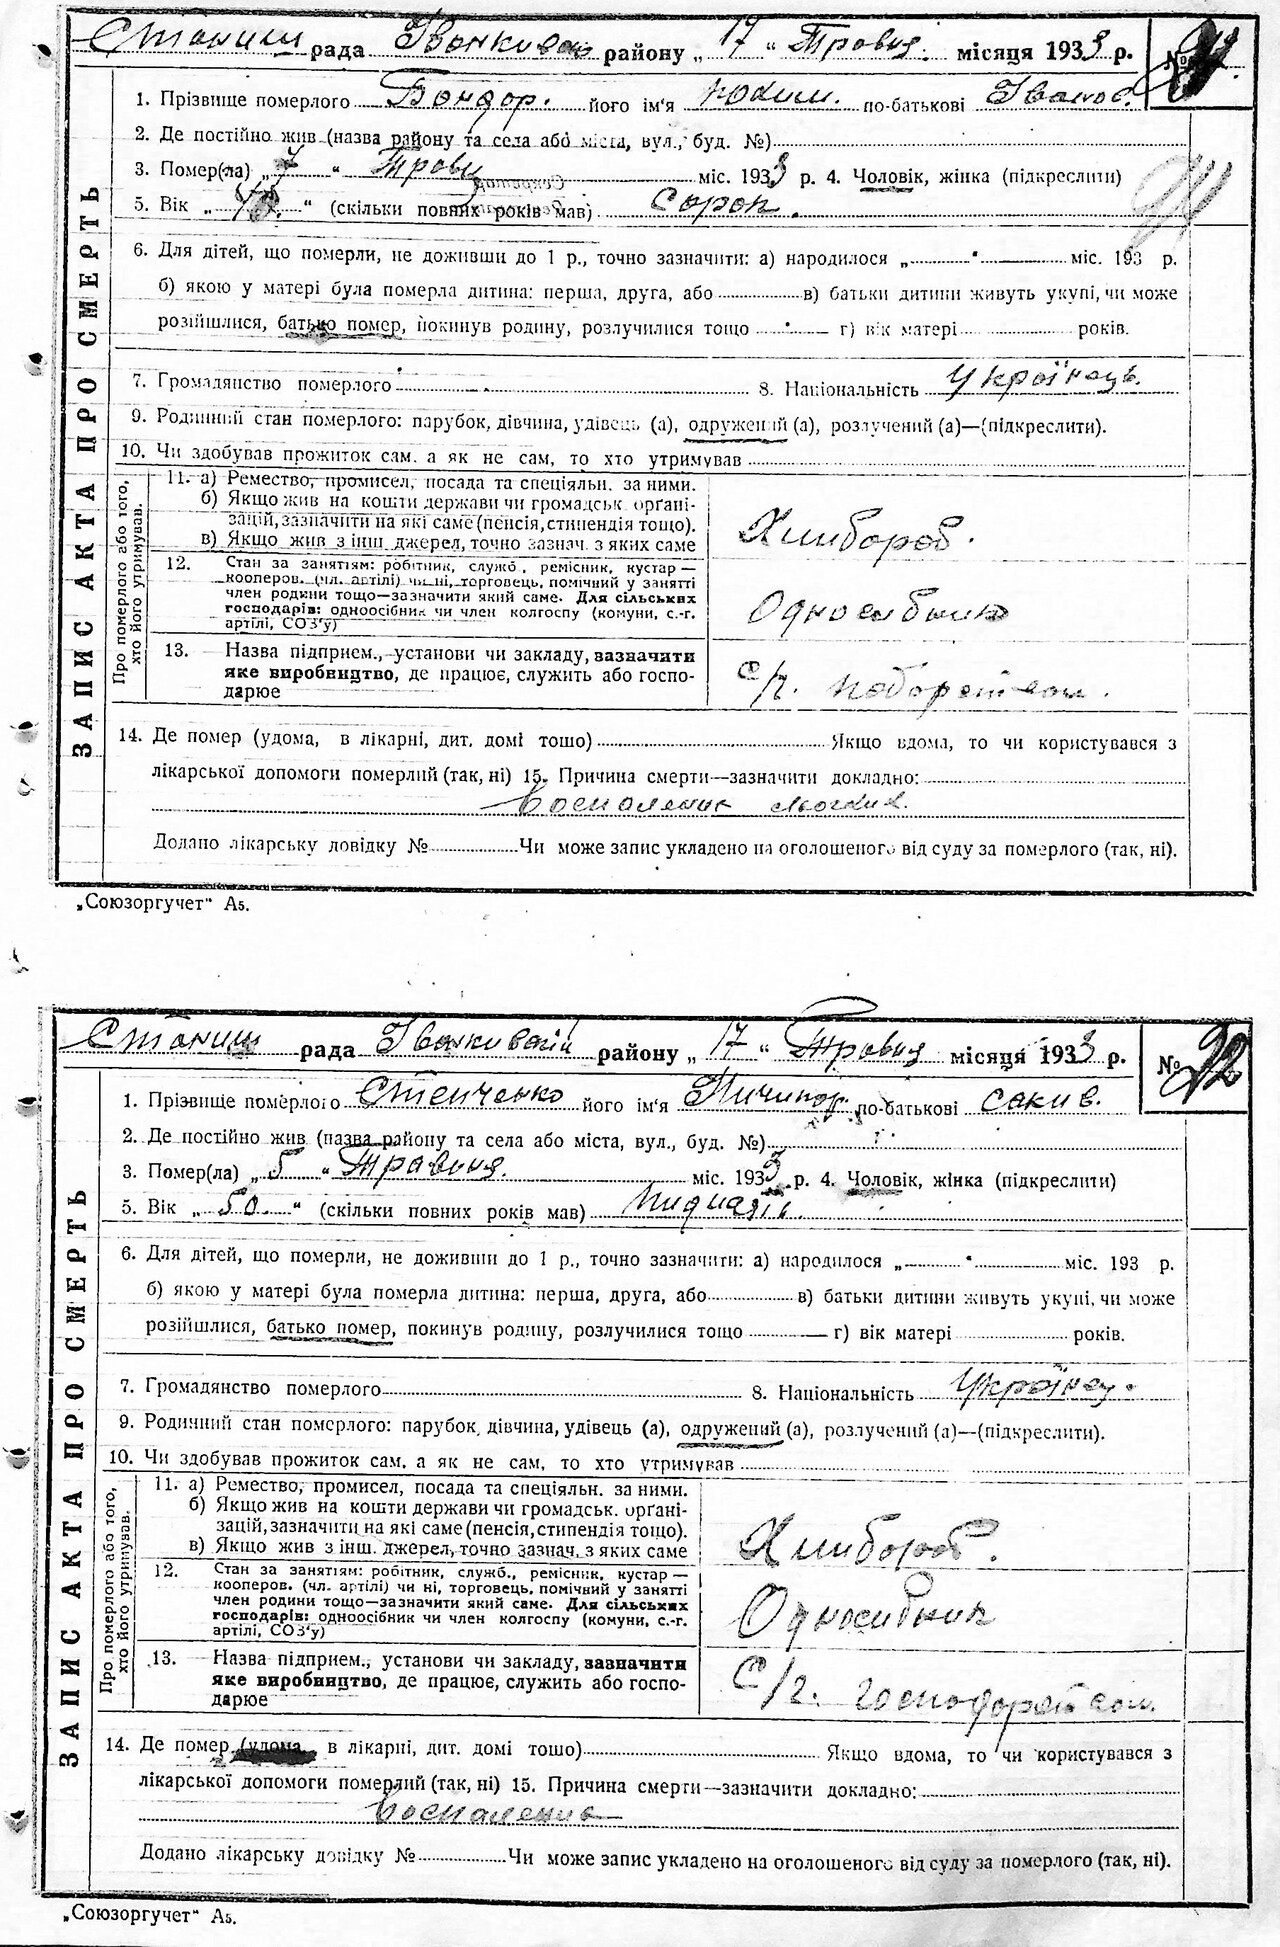 Станиш рада Іванківськ району „ 17 “ Травня. місяця 1933 р. №
1. Прізвище померлого Бондар. його ім‘я по-батькові Іванов.
2. Де постійно жив (назва району та села або міста, вул., буд. №)
3. Помер(ла) „ 7 “ Травня міс. 1933 р. 4. Чоловік, жінка (підкреслити)
5. Вік „ 40. “ (скільки повних років мав) Сорок.
6. Для дітей, що померли, не доживши до 1 р., точно зазначити: а) народилося „ “ міс. 193 р.
б) якою у матері була померла дитина: перша, друга, або в) батьки дитини живуть укупі, чи може
розійшлися, батько помер, покинув родину, розлучилися тощо г) вік матері років.
7. Громадянство померлого 8. Національність Українець.
9. Родинний стан померлого: парубок, дівчина, удівець (а), одружений (а), розлучений (а)—(підкреслити).
10. Чи здобував прожиток сам, а як не сам, то хто утримував
ЗАПИС АКТА ПРО СМЕРТЬ
Про померлого або того, хто його утримував.
11. а) Ремество, промисел, посада та спеціяльн. за ними.
б) Якщо жив на кошти держави чи громадськ. орґані-
зацій, зазначити на які саме (пенсія, стипендія тощо).
в) Якщо жив з інш. джерел, точно зазнач. з яких саме
Хлибороб.
12. Стан за занятям: робітник, служб., ремісник, кустар —
кооперов. (чл. артілі) чи ні, торговець, помічний у занятті
член родини тощо—зазначити який саме. Для сільських
господарів: одноосібник чи член колгоспу (комуни, с.-г.
артілі, СОЗ‘у)
Односибник
13. Назва підприєм., установи чи закладу, зазначити
яке виробництво, де працює, служить або госпо-
дарює
С/г.
14. Де помер (удома, в лікарні, дит. домі тошо) Якщо вдома, то чи користувався з
лікарської допомоги померлий (так, ні) 15. Причина смерти—зазначити докладно:
Воспаления
Додано лікарську довідку № Чи може запис укладено на оголошеного від суду за померлого (так, ні).
„Союзоргучет“ А5.
Станиш рада Іванкивскій району „ 17 “ Травня місяця 1933 р. № 92
1. Прізвище померлого Стенченко його ім‘я Ничипор по-батькові Сакив.
2. Де постійно жив (назва району та села або міста, вул., буд. №)
3. Помер(ла) „ 5 “ Травня. міс. 1933 р. 4. Чоловік, жінка (підкреслити)
5. Вік „ 50. “ (скільки повних років мав)
6. Для дітей, що померли, не доживши до 1 р., точно зазначити: а) народилося „ “ міс. 193 р.
б) якою у матері була померла дитина: перша, друга, або в) батьки дитини живуть укупі, чи може
розійшлися, батько помер, покинув родину, розлучилися тощо г) вік матері років.
7. Громадянство померлого 8. Національність Українец.
9. Родинний стан померлого: парубок, дівчина, удівець (а), одружений (а), розлучений (а)—(підкреслити).
10. Чи здобував прожиток сам, а як не сам, то хто утримував
ЗАПИС АКТА ПРО СМЕРТЬ
Про померлого або того, хто його утримував.
11. а) Ремество, промисел, посада та спеціяльн. за ними.
б) Якщо жив на кошти держави чи громадськ. орґані-
зацій, зазначити на які саме (пенсія, стипендія тощо).
в) Якщо жив з інш. джерел, точно зазнач. з яких саме
Хлибороб.
12. Стан за занятям: робітник, служб., ремісник, кустар —
кооперов. (чл. артілі) чи ні, торговець, помічний у занятті
член родини тощо—зазначити який саме. Для сільських
господарів: одноосібник чи член колгоспу (комуни, с.-г.
артілі, СОЗ‘у)
Односибник
13. Назва підприєм., установи чи закладу, зазначити
яке виробництво, де працює, служить або госпо-
дарює
С/г. господарством.
14. Де помер (удома, в лікарні, дит. домі тошо) Якщо вдома, то чи користувався з
лікарської допомоги померлий (так, ні) 15. Причина смерти—зазначити докладно:
Воспаления
Додано лікарську довідку № Чи може запис укладено на оголошеного від суду за померлого (так, ні).
„Союзоргучет“ А5.